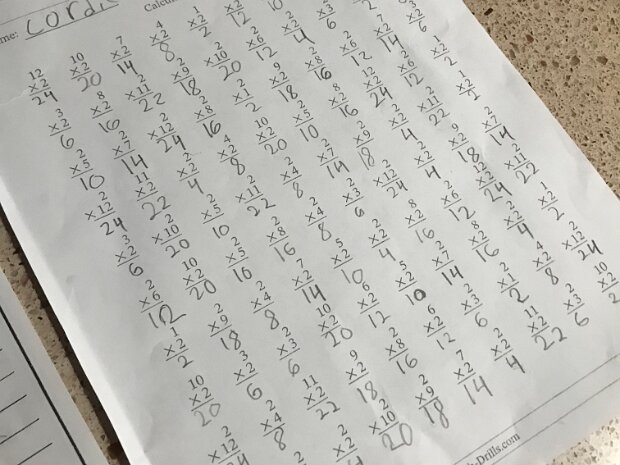 12 10 7 4 1 2
×2 ×2 ×2 ×2 ×2 ×12
24 20 14 8 2
3 8 2 2 2 2 2 2
×2 ×2 ×11 ×9 ×10 ×6 ×2 ×3
6 16 22 18 20 12 4 6
2 2 2 2 2 9 2 2 2 3
×5 ×7 ×12 ×8 ×1 ×2 ×8 ×6 ×7 ×2
10 14 24 16 2 18 16 12 14 6
2 11 2 4 10 2 8 12 2 1
×12 ×2 ×2 ×2 ×2 ×5 ×2 ×2 ×6 ×2
24 22 4 8 20 10 16 24 12 2
3 2 2 2 2 2 2 2 2 1
×2 ×10 ×5 ×11 ×4 ×7 ×9 ×2 ×11 ×2
6 20 10 22 8 14 18 4 22 2
2 10 2 2 2 2 2 2 9 2
×6 ×2 ×5 ×8 ×4 ×3 ×12 ×2 ×2 ×7
12 20 16 16 8 6 24 4 18 14
1 2 2 7 5 2 8 2 12 2
×2 ×9 ×4 ×2 ×2 ×2 ×2 ×6 ×2 ×11
2 18 8 14 10 4 16 12 24 22
10 3 2 10 6 5 2 8 2 1
×2 ×2 ×3 ×2 ×2 ×2 ×7 ×2 ×2 ×2
20 6 6 20 12 10 14 16 4 2
2 2 11 9 2 6 2 2 4 2
×12 ×4 ×2 ×2 ×8 ×2 ×3 ×1 ×2 ×12
24 8 22 18 16 12 6 2 8 24
2 2 2 2 7 2 11 2 10
×2 ×10 ×9 ×2 ×2 ×2 ×3 ×2
20 18 14 4 22 6 2
Drills.com